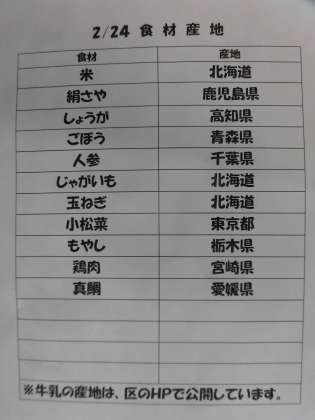 2/24 食材産地
食材 産地
米 北海道
絹さや 鹿児島県
しょうが 高知県
ごぼう 青森県
人参 千葉県
じゃがいも 北海道
玉ねぎ 北海道
小松菜 東京都
もやし 栃木県
鶏肉 宮崎県
真鯛 愛媛県
※牛乳の産地は、区のHPで公開しています。